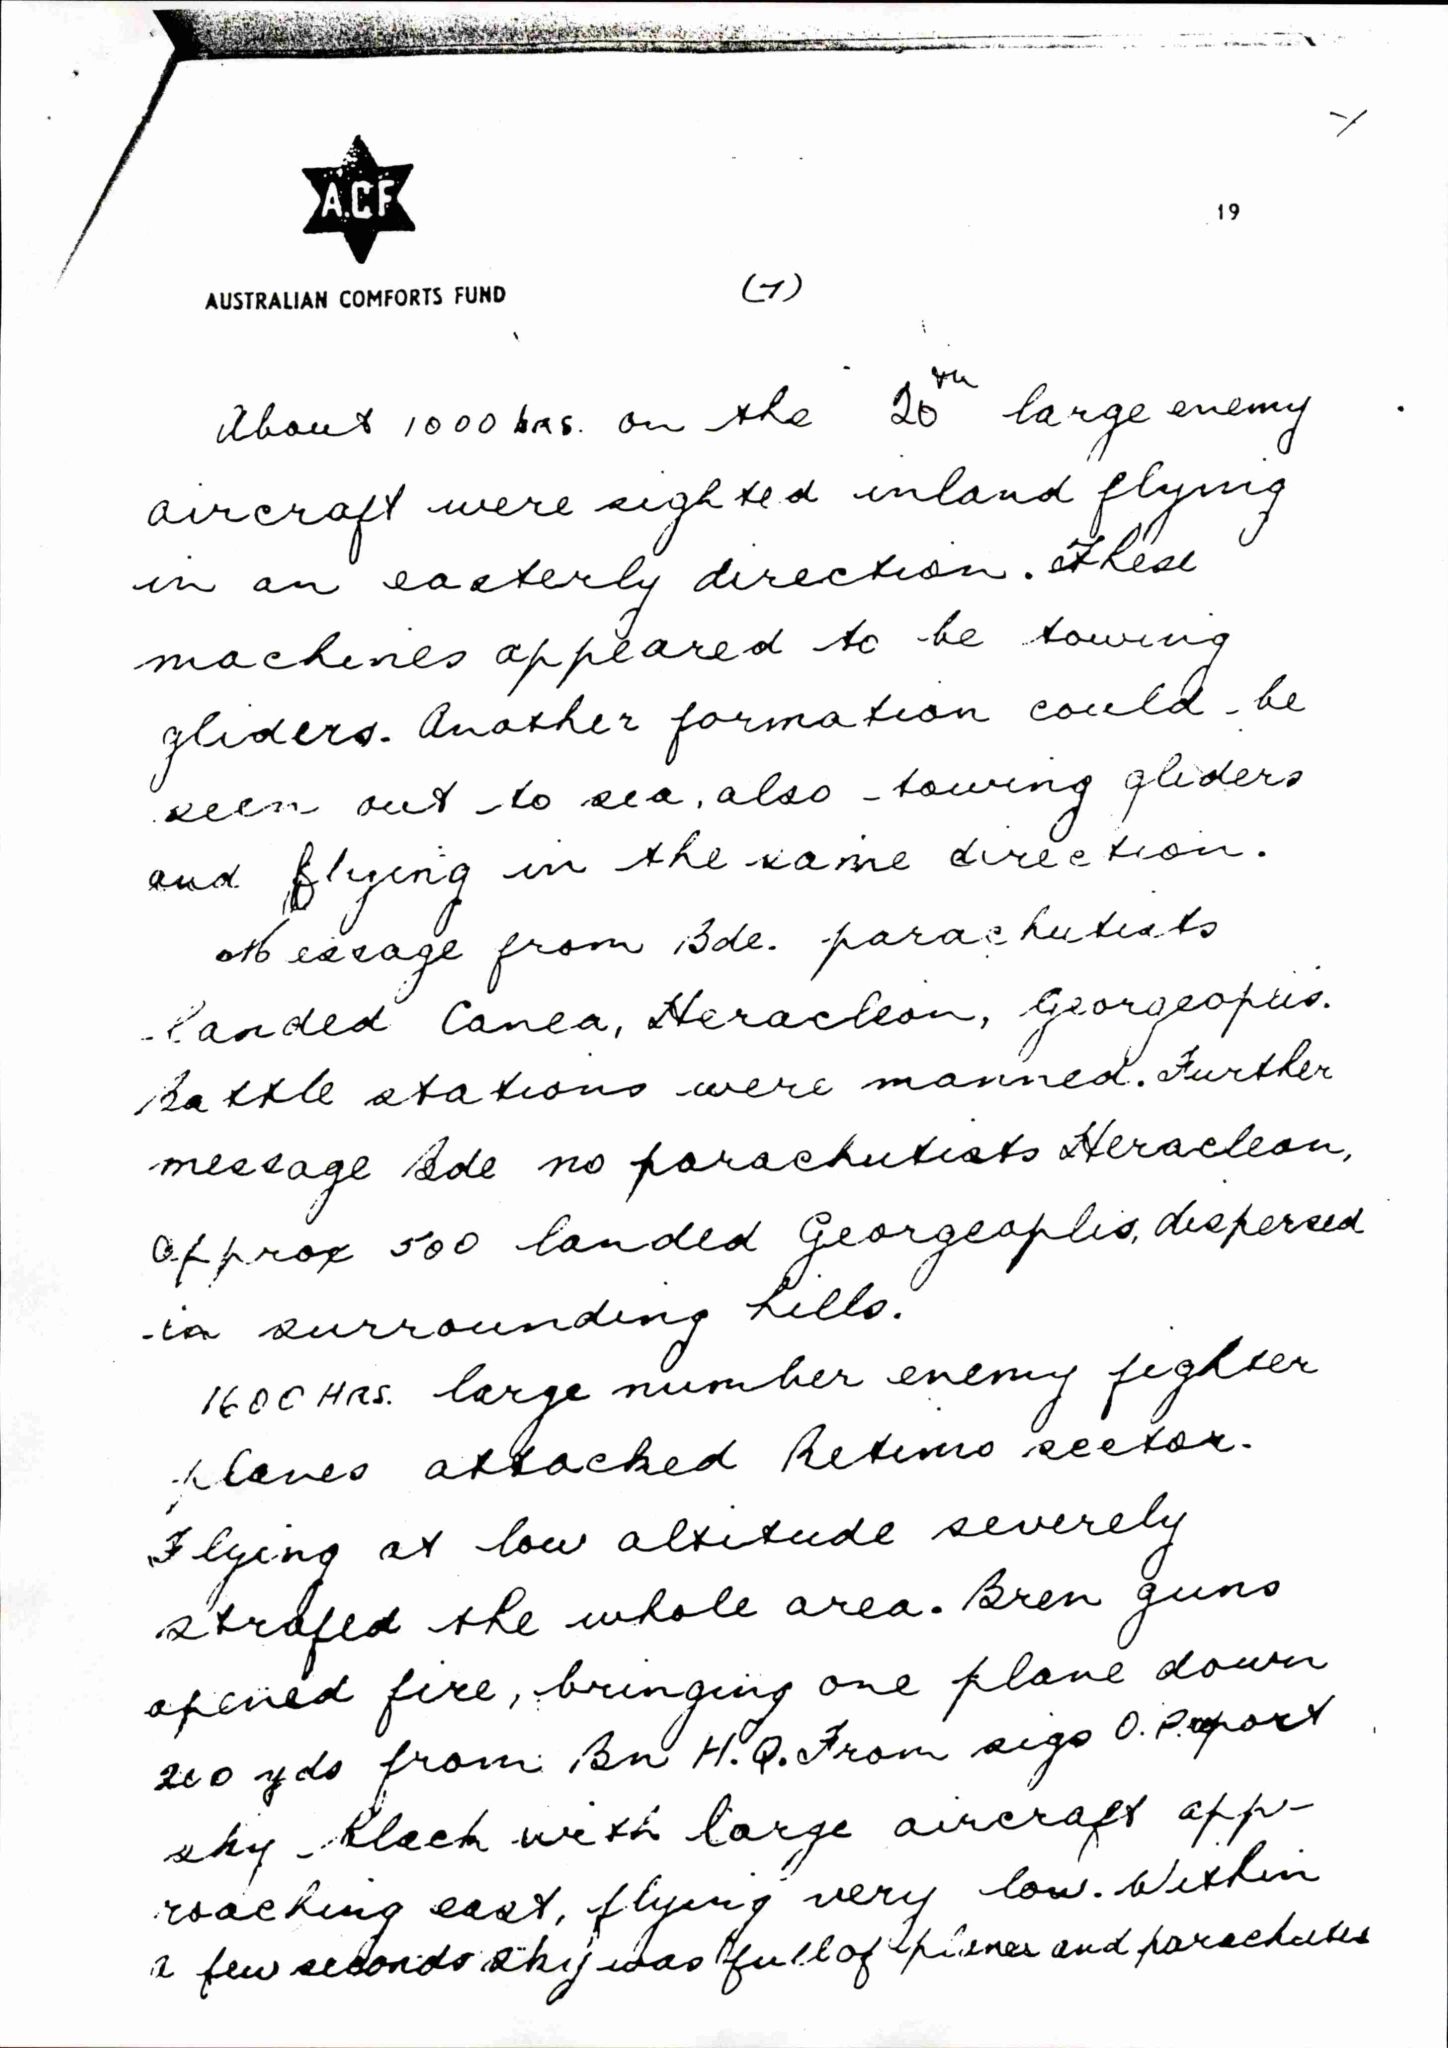 A.C.F
19
AUSTRALIAN COMFORTS FUND
(7)
About 1000 hrs. on the 20th large enemy
aircraft were sighted inland flying
in an easterly direction. These
machines appeared to be towing
gliders. Another formation could be
seen out to sea, also towing gliders
and flying in the same direction.
Message from Bde. parachutists
landed Canea, Heracleon, Georgeoplis.
Battle stations were manned. Further
message Bde no parachutists Heracleon,
Approx 500 landed Georgeoplis, dispersed
in surrounding hills.
1600 HRS. large number enemy fighter
planes attacked Retimo sector.
Flying at low altitude severely
strafed the whole area. Bren guns
opened fire, bringing one plane down
200 yds from Bn H.Q. From sigs O.P. report
sky black with large aircraft app-
roaching east, flying very low. Within
a few seconds sky was full of planes and parachutes